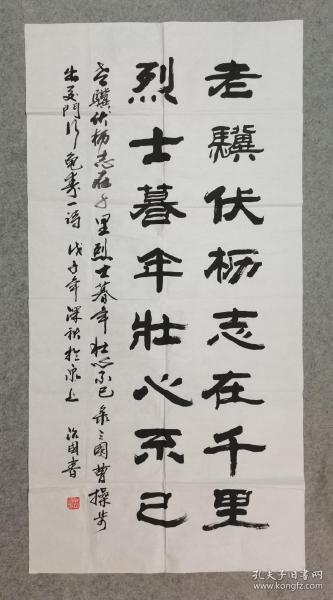 老驥伏枥志在千里
烈士暮年壮心不已
老驥伏枥志在千里烈士暮年壮心不已录三国曹操步
出夏门行龟寿一诗 戊子年深秋於泉上 治国书
孔夫子旧书网